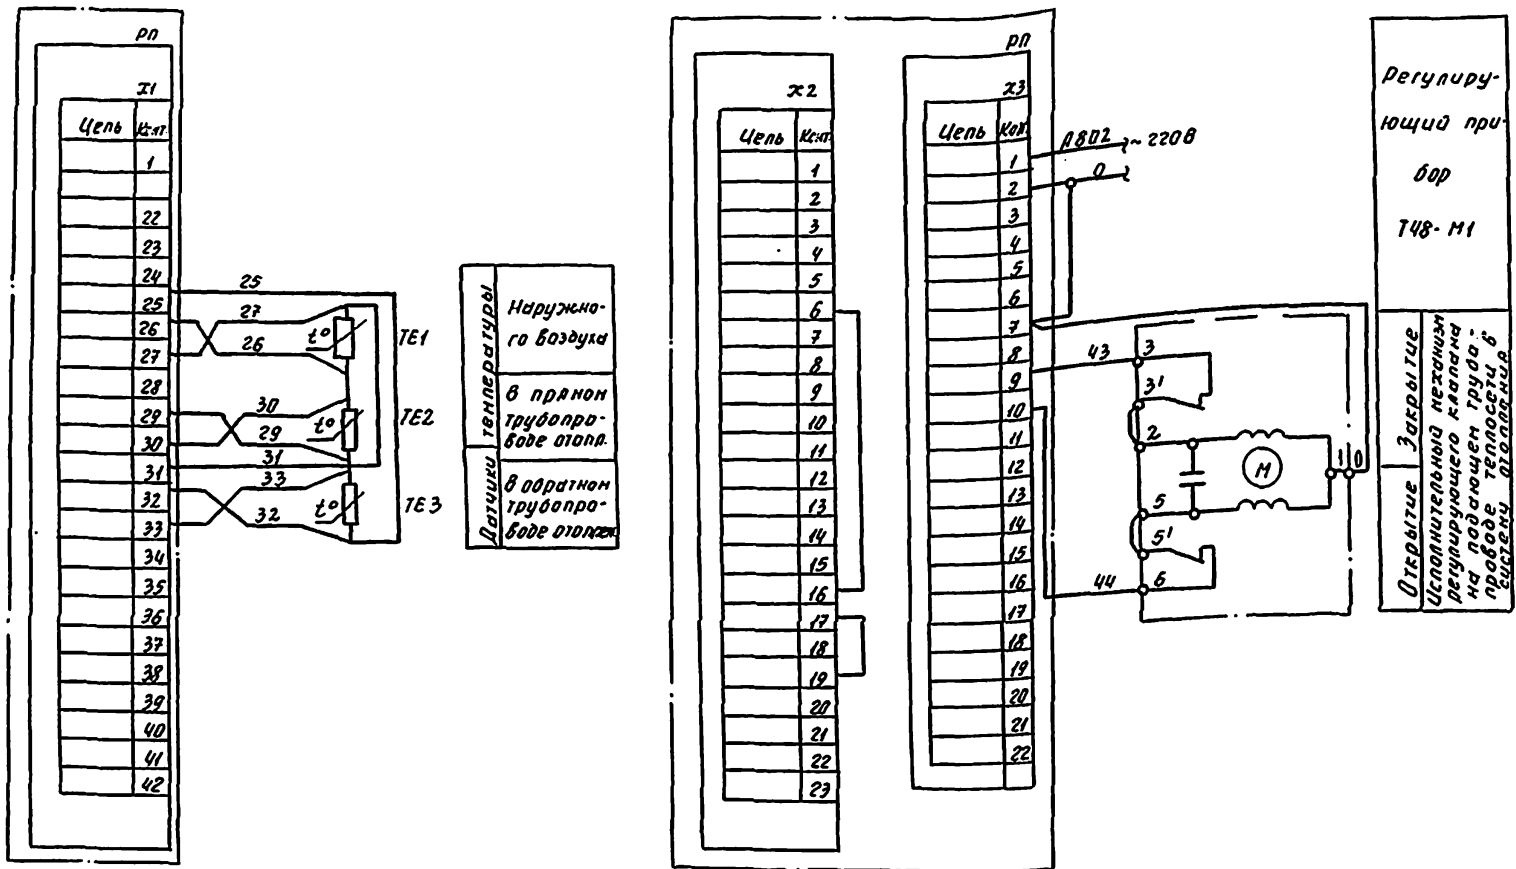 РП
X1
Цепь Конт.
1
22
23
24
25
26
27
28
29
30
31
32
33
34
35
36
37
38
39
40
41
42
25
27
26
30
29
31
33
32
t°
t°
t°
ТЕ1
ТЕ2
ТЕ3
Датчики температуры
Наружно-
го воздуха
в прямом
трубопро-
воде отопл.
в обратном
трубопро-
воде отоплен.
X2
Цепь Конт.
1
2
3
4
5
6
7
8
9
10
11
12
13
14
15
16
17
18
19
20
21
22
23
РП
X3
Цепь Конт.
1
2
3
4
5
6
7
8
9
10
11
12
13
14
15
16
17
18
19
20
21
22
А802 ~220В
0
43
44
3
3'
2
5
5'
6
М
1 0
Регулиру-
ющий при-
бор
Т48-М1
Открытие Закрытие
Исполнительный механизм
регулирующего клапана
на подающем трубо-
проводе теплосети в
систему отопления